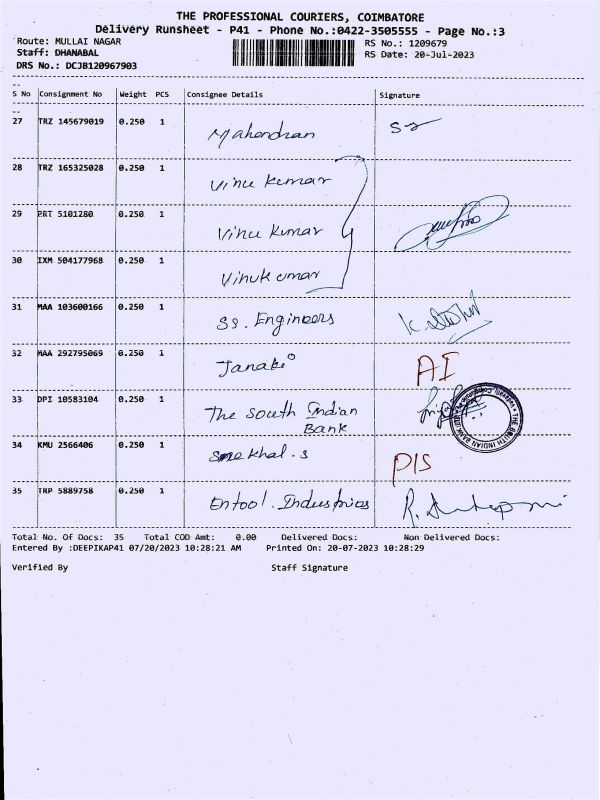 THE PROFESSIONAL COURIERS, COIMBATORE
Delivery Runsheet - P41 - Phone No.:0422-3505555 - Page No.:3
Route: MULLAI NAGAR RS No.: 1209679
Staff: DHANABAL RS Date: 20-Jul-2023
DRS No.: DCJB120967903
S No Consignment No Weight PCS Consignee Details Signature
27 TRZ 145679019 0.250 1 Mahendran
28 TRZ 165325028 0.250 1 Vinu Kumar
29 PRT 5101280 0.250 1 Vinu Kumar
30 IXM 504177968 0.250 1 Vinukumar
31 MAA 103600166 0.250 1 SS. Engineers
32 MAA 292795069 0.250 1 Janaki AI
33 DPI 10583104 0.250 1 The South Indian
Bank
34 KMU 2566406 0.250 1 PIS
35 TRP 5889758 0.250 1 Entool. Industries
Total No. Of Docs: 35 Total COD Amt: 0.00 Delivered Docs: Non Delivered Docs:
Entered By :DEEPIKAP41 07/20/2023 10:28:21 AM Printed On: 20-07-2023 10:28:29
Verified By Staff Signature